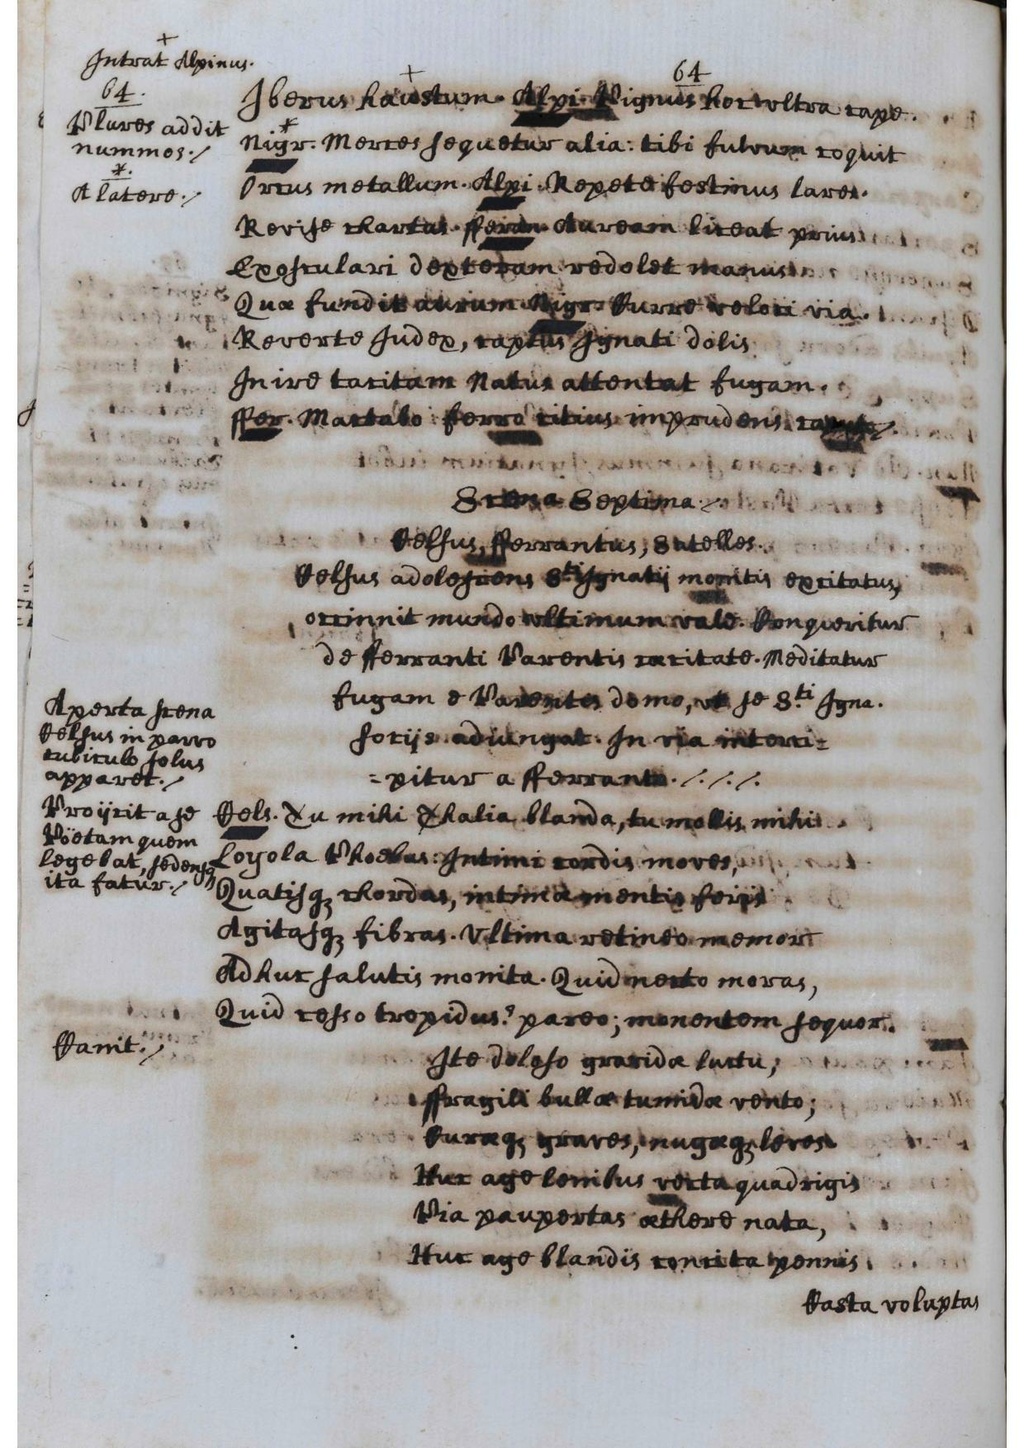 +
Intrat Alpinus.
64.
Plures addit
nummos./
*.
A latere./
+ 64
Iberus haustum. Alpi. Pignus hoc ultra cape.
*
Nigr. Merces sequetur alia: tibi fulvum coquit
Ortus metallum. Alpi. Repete festinus lares.
Revise chartas. fferan. Auream liceat prius
Exosculari dexteram redolet manus
Quæ fundit aurum. Nigr. Curre veloci via.
Reverte Judex, captus Ignati dolis
Inire tacitam Natus attentat fugam.
ffer. Mactabo ferro citius imprudens
Scena Septima./
Celsus, fferrantus, Satelles.
Celsus adolescens Sti Ignatij monitis excitatus,
occinnit mundo ultimum vale. Conqueritur
de fferranti Parentis caritate. Meditatur
fugam e Parentis domo, ut se Sti Igna.
socijs adiungat. In via interci=
=pitur a fferranto./././.
Aperta scena
Celsus in parvo
cubiculo solus
apparet./
Proijcit a se
Pöetam quem
legebat, sedensq
ita fatur./
Cels. Tu mihi Thalia blanda, tu mollis mihi
Loyola Phoebus: Intimi cordis moves,
Quatisq chordas, intimæ mentis feris
Agitasq fibras. Ultima retineo memor
Adhuc salutis monita. Quid necto moras,
Quid cesso trepidus? pareo; monentem sequor.
Canit./
Ite doloso gravidæ luctu,
ffragili bullæ tumidæ vento;
Curæq graves, nugæq leves
Huc age lenibus vecta quadrigis
Pia paupertas æthere nata,
Huc age blandis concita pennis
Casta voluptas